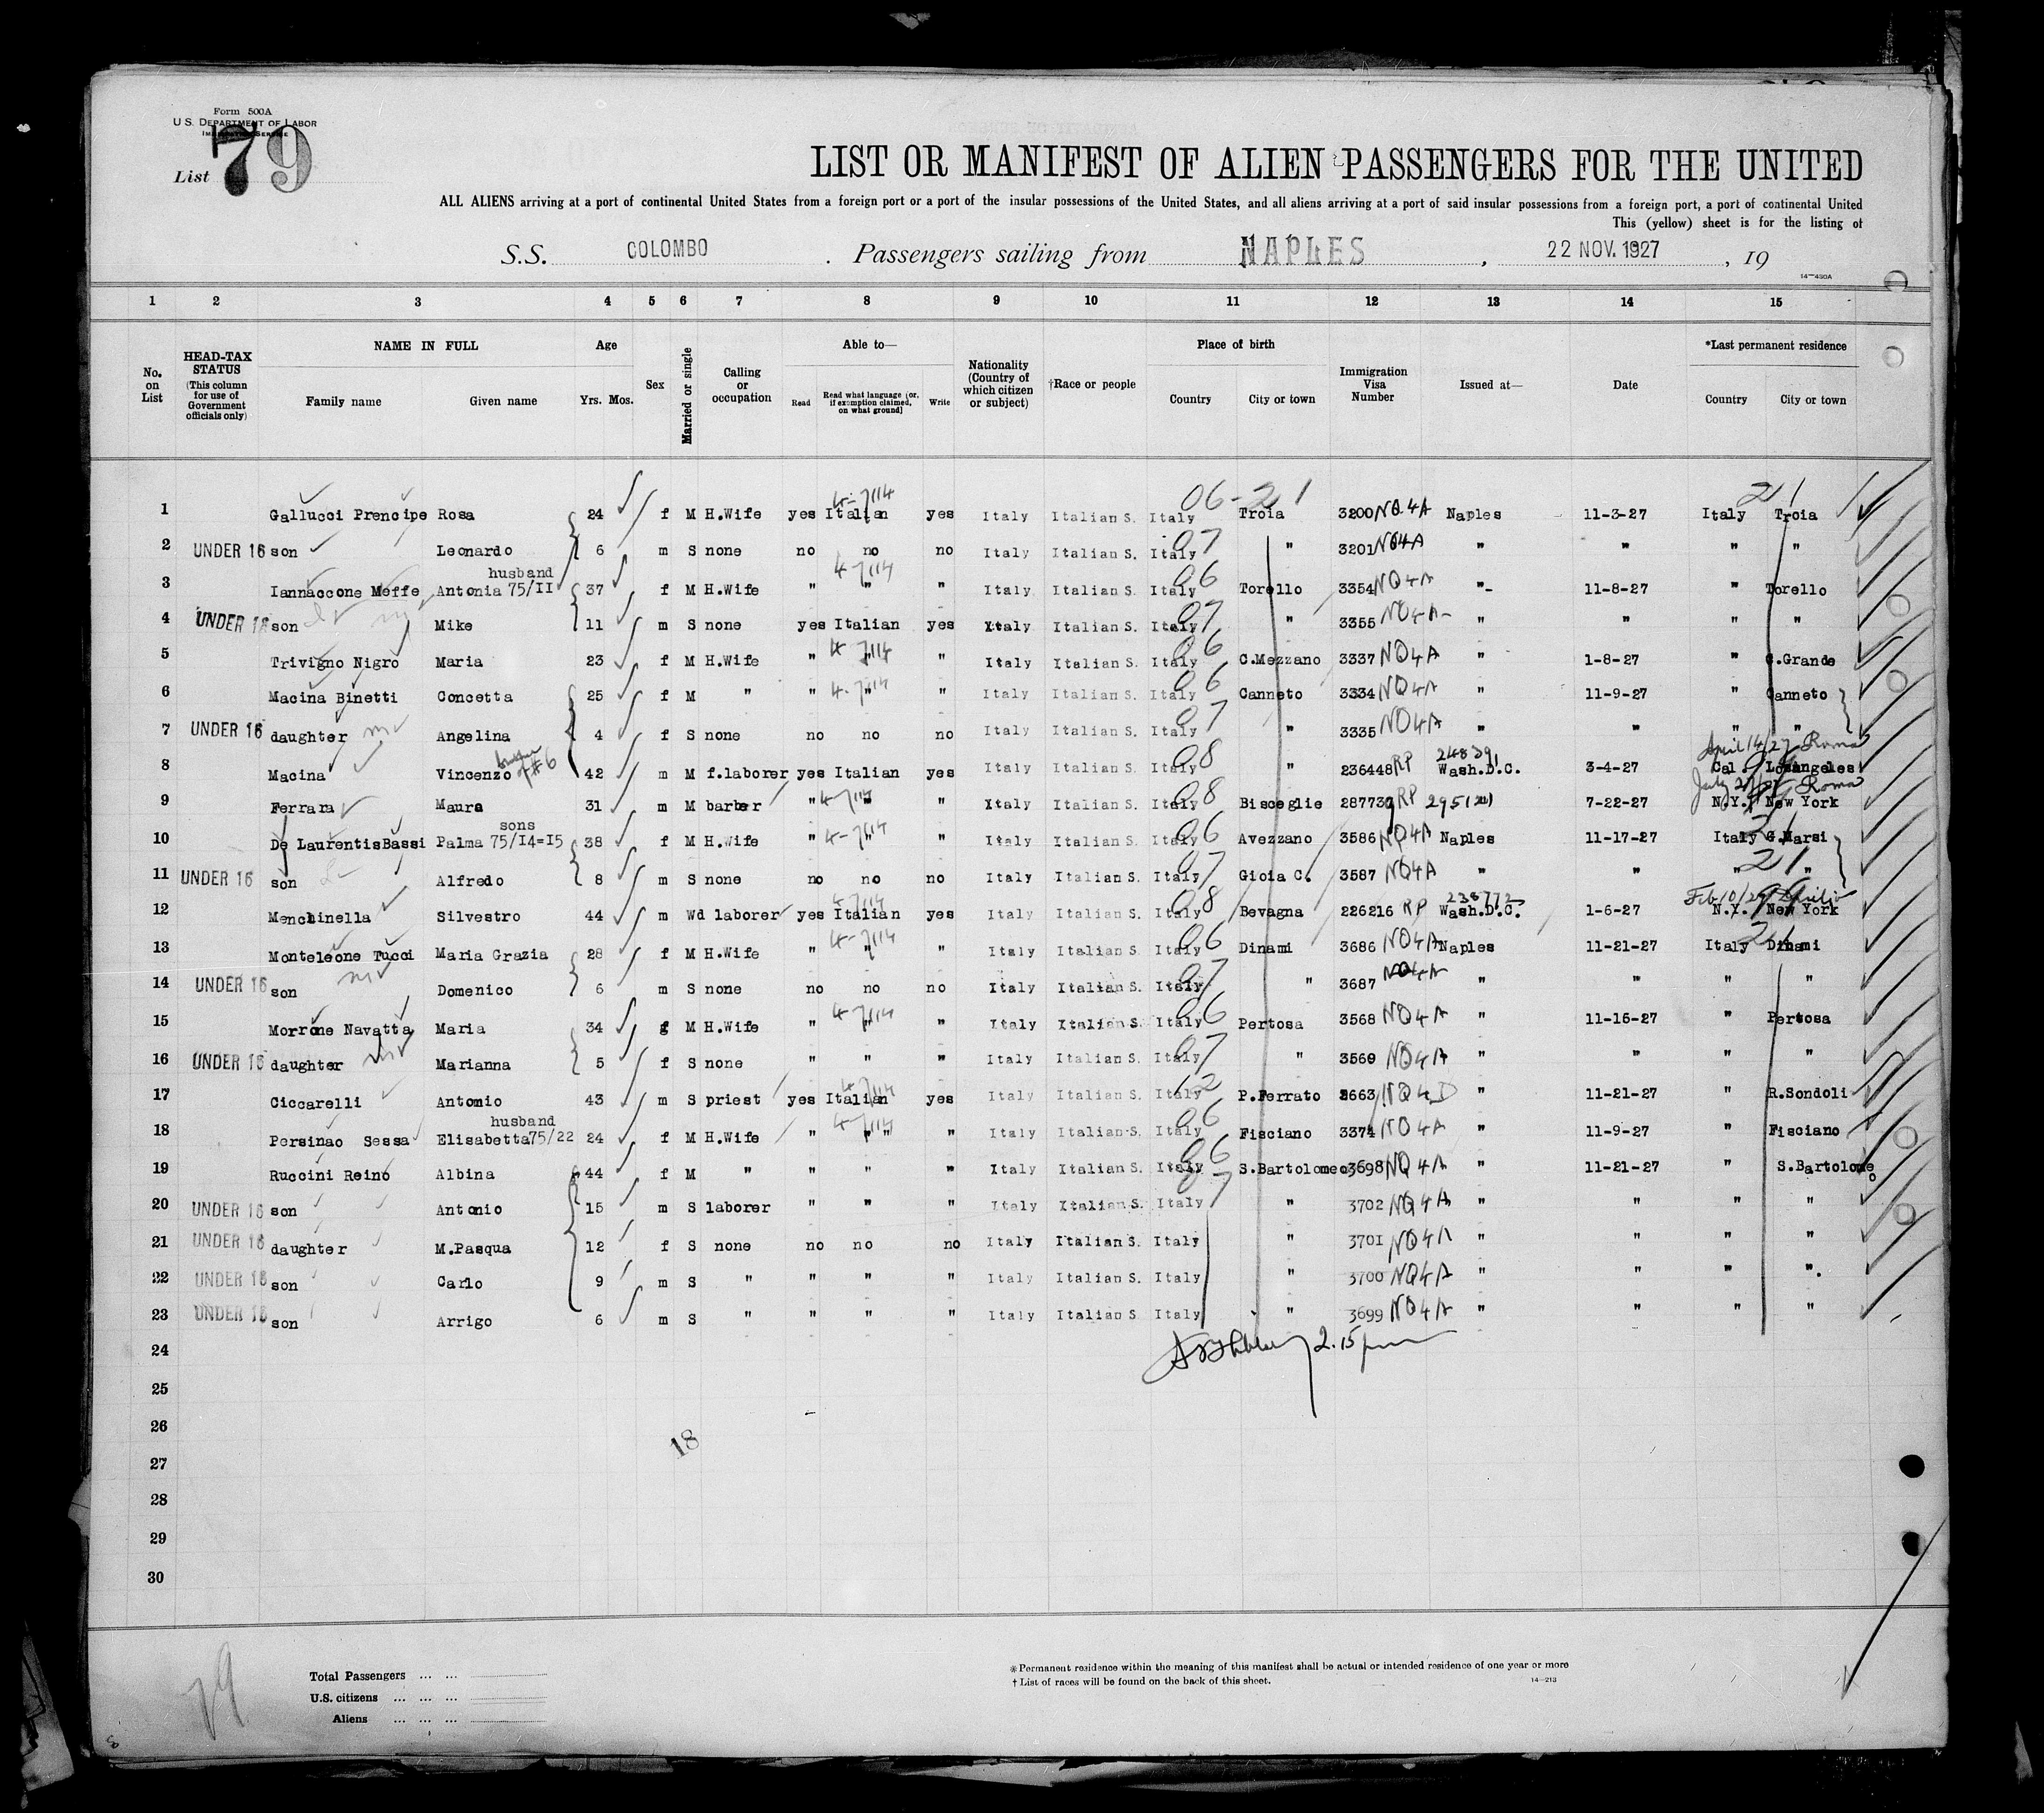 Form 500A
U.S. DEPARTMENT OF LABOR
IMMIGRATION SERVICE
List 79
LIST OR MANIFEST OF ALIEN PASSENGERS FOR THE UNITED
ALL ALIENS arriving at a port of continental United States from a foreign port or a port of the insular possessions of the United States, and all aliens arriving at a port of said insular possessions from a foreign port, a port of continental United
This (yellow) sheet is for the listing of
S.S. COLOMBO . Passengers sailing from NAPLES , 22 NOV. 1927 , 19
14—430A
1 2 3 4 5 6 7 8 9 10 11 12 13 14 15
No. on List
HEAD-TAX STATUS (This column for use of Government officials only)
NAME IN FULL
Family name Given name
Age
Yrs. Mos.
Sex
Married or single
Calling or occupation
Able to—
Read Read what language [or, if exemption claimed, on what ground] Write
Nationality (Country of which citizen or subject)
†Race or people
Place of birth
Country City or town
Immigration Visa Number
Issued at—
Date
*Last permanent residence
Country City or town
4-7/14 06-21 21
1 Gallucci Prencipe Rosa 24 f M H.Wife yes Italian yes Italy Italian S. Italy Troia 3200 NQ4A Naples 11-3-27 Italy Troia
2 UNDER 16 son Leonardo 6 m S none no no no Italy Italian S. Italy 07 " 3201 NQ4A " " " "
husband 4-7/14
3 Iannaccone Meffe Antonia 75/11 37 f M H.Wife " " " Italy Italian S. Italy 06 Torello 3354 NQ4A "- 11-8-27 " Torello
4 UNDER 16 son Mike 11 m S none yes Italian yes Italy Italian S. Italy 07 " 3355 NQ4A- " " " "
5 Trivigno Nigro Maria 23 f M H.Wife " 4-7/14 " " Italy Italian S. Italy 06 C.Mezzano 3337 NQ4A " 1-8-27 " C.Grande
6 Macina Binetti Concetta 25 f M " " 4-7/14 " " Italy Italian S. Italy 06 Canneto 3334 NQ4A " 11-9-27 " Canneto
7 UNDER 16 daughter Angelina 4 f S none no no no Italy Italian S. Italy 07 " 3335 NQ4A " " " "
#6 24839 April 14/27 Roma
8 Macina Vincenzo 42 m M f.laborer yes Italian yes Italy Italian S. Italy 08 " 236448 RP Wash.D.C. 3-4-27 Cal. Los Angeles
Roma
9 Ferrara Maura 31 m M barber " 4-7/14 " " Italy Italian S. Italy 08 Bisceglie 287739 RP 7-22-27 N.Y. New York
sons
10 De LaurentisBassi Palma 75/14=15 38 f M H.Wife " 4-7/14 " " Italy Italian S. Italy 06 Avezzano 3586 NQ4A Naples 11-17-27 Italy G.Marsi
11 UNDER 16 son Alfredo 8 m S none no no no Italy Italian S. Italy 07 Gioia C. 3587 NQ4A " " " 21 "
4-7/14 238772
12 Menchinella Silvestro 44 m Wd laborer yes Italian yes Italy Italian S. Italy 08 Bevagna 226216 RP Wash.D.C. 1-6-27 N.Y. New York
4-7/14 21
13 Monteleone Tucci Maria Grazia 28 f M H.Wife " " " Italy Italian S. Italy 06 Dinami 3686 NQ4A Naples 11-21-27 Italy Dinami
14 UNDER 16 son Domenico 6 m S none no no no Italy Italian S. Italy 07 " 3687 NQ4A " " " "
4-7/14
15 Morrone Navatta Maria 34 f M H.Wife " " " Italy Italian S. Italy 06 Pertosa 3568 NQ4A " 11-16-27 " Pertosa
16 UNDER 16 daughter Marianna 5 f S none " " " Italy Italian S. Italy 07 " 3569 NQ4A " " " "
17 Ciccarelli Antonio 43 m S priest yes Italian yes Italy Italian S. Italy 12 P.Ferrato 3663 NQ4D " 11-21-27 " R.Sondoli
husband 4-7/14
18 Persinao Sessa Elisabetta 75/22 24 f M H.Wife " " " " Italy Italian S. Italy 06 Fisciano 3374 NQ4A " 11-9-27 " Fisciano
19 Ruccini Reino Albina 44 f M " " " " Italy Italian S. Italy 06 S.Bartolomeo 3698 NQ4A " 11-21-27 " S.Bartolomeo
20 UNDER 16 son Antonio 15 m S laborer " " " Italy Italian S. Italy 07 " 3702 NQ4A " " " "
21 UNDER 16 daughter M.Pasqua 12 f S none no no no Italy Italian S. Italy " 3701 NQ4A " " " "
22 UNDER 16 son Carlo 9 m S " " " " Italy Italian S. Italy " 3700 NQ4A " " " ".
23 UNDER 16 son Arrigo 6 m S " " " " Italy Italian S. Italy " 3699 NQ4A " " " "
24 2.15 pm
25
26
18
27
28
29
30
79
Total Passengers ... ...
U.S. citizens ... ... ...
Aliens ... ... ...
*Permanent residence within the meaning of this manifest shall be actual or intended residence of one year or more
† List of races will be found on the back of this sheet.
14—213